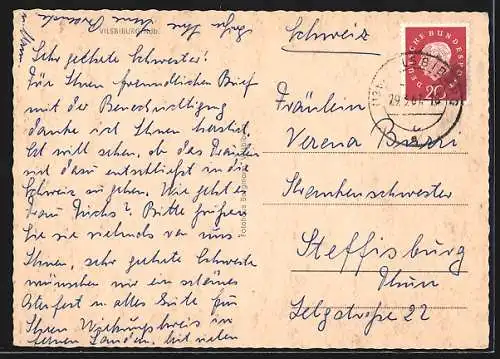 VILSBIBURG/NDB.
Sehr geehrte Schwester!
Für Ihren freundlichen Brief
mit der Benachrichtigung
danke ich Ihnen herzlich.
Ich will sehen, ob das Fräulein
sich dazu entschließt in die
Schweiz zu gehen. Wie geht es
Frau Fuchs? Bitte grüßen
Sie sie vielmals von uns.
Ihnen, sehr geehrte Schwester
wünschen wir ein schönes
Osterfest u. alles Gute für
Ihren Wirkungskreis in
fernen Landen. Mit vielen
Schweiz
DEUTSCHE BUNDESPOST
20
Fräulein
Verena
Krankenschwester
Steffisburg
Thun
Selgstraße 22